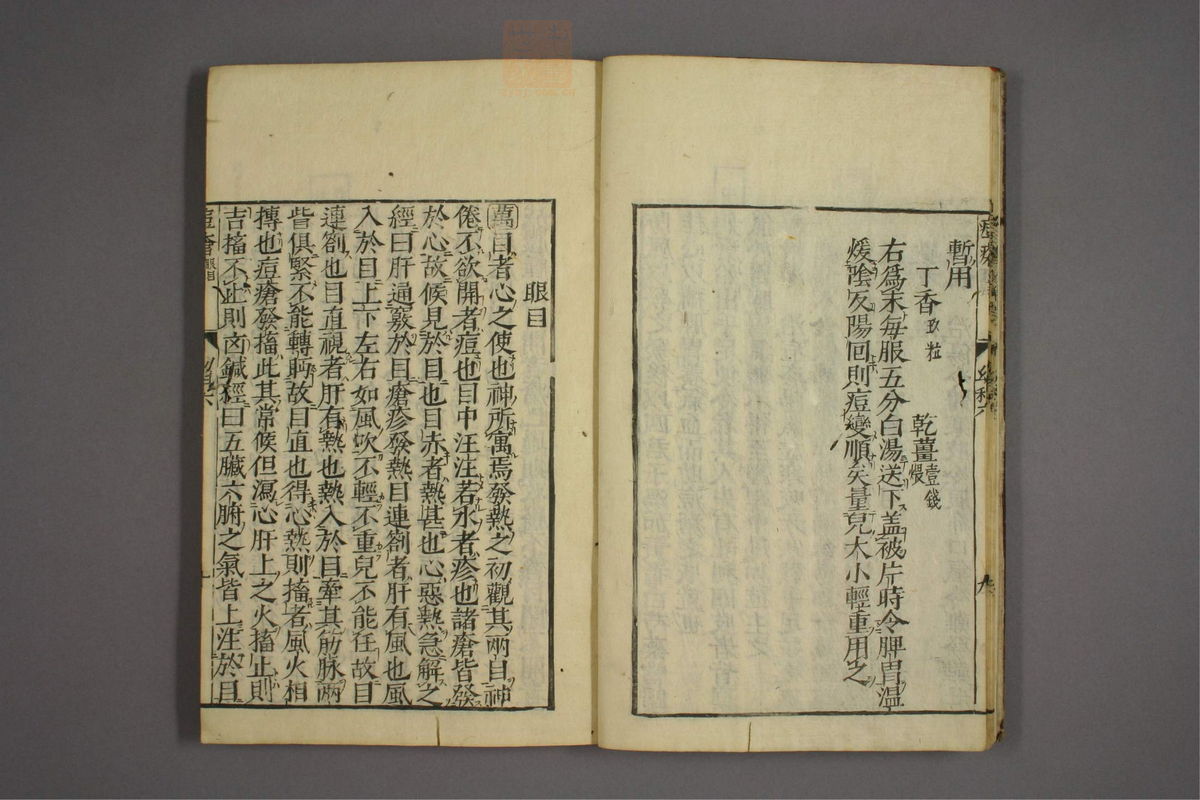 暫用
丁香玖粒 乾薑壹錢煨
右爲末每服五分白湯送下盖被片時令脾胃溫
煖陰反陽回則痘變順矣量兒大小輕重用之
眼目
萬目者心之使也神所寓焉發熱之初觀其兩目神
倦不欲開者痘也目中汪汪若水者疹也諸瘡皆發
於心故候見於目也目赤者熱甚也心惡熱急解之
經曰肝通竅於目瘡疹發熱目連劄者肝有風也風
入於目上下左右如風吹不輕不重兒不能任故目
連劄也目直視者肝有熱也熱入於目牽其筋脉兩
眥俱緊不能轉眄故目直也得心熱則搐者風火相
摶也痘瘡發搐此其常候但瀉心肝上之火搐止則
吉搐不止則凶鍼經曰五臟六腑之氣皆上注於目